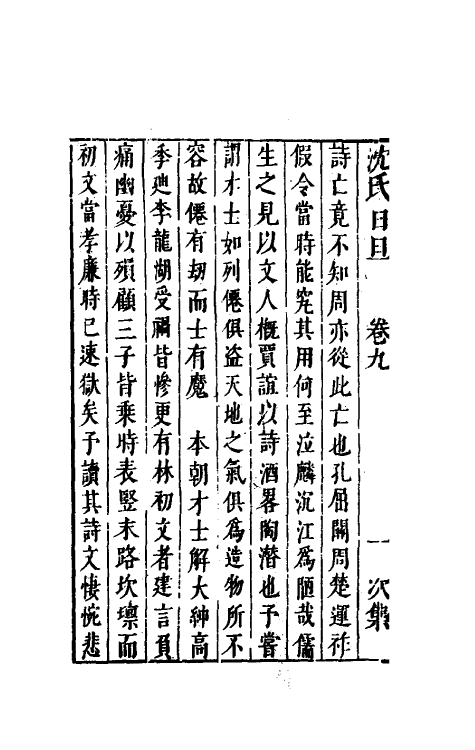 沈氏日旦 卷九 一 次集
詩亡竟不知周亦從此亡也孔屈關周楚運祚
假令當時能究其用何至泣麟沉江爲陋哉儒
生之見以文人概賈誼以詩酒畧陶潛也予嘗
謂才士如列僊俱盜天地之氣俱爲造物所不
容故僊有劫而士有魔 本朝才士解大紳高
季迪李龍湖受禍皆慘更有林初文者建言負
痛幽憂以殞顧三子皆乘時表豎末路坎壈而
初文當孝廉時已速獄矣予讀其詩文悽惋悲